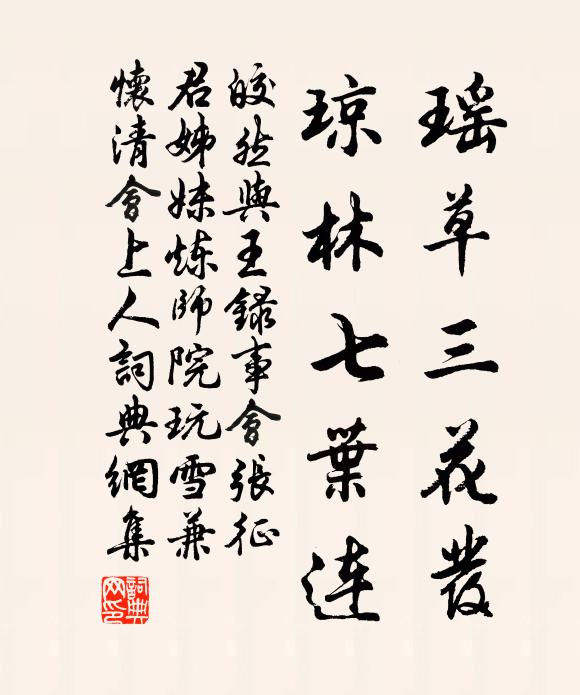 瑶草三花發
琼林七葉連
皎然與王錄事會張征
君姊妹炼師院玩雪兼
懷清會上人詞典網集
詞典网印